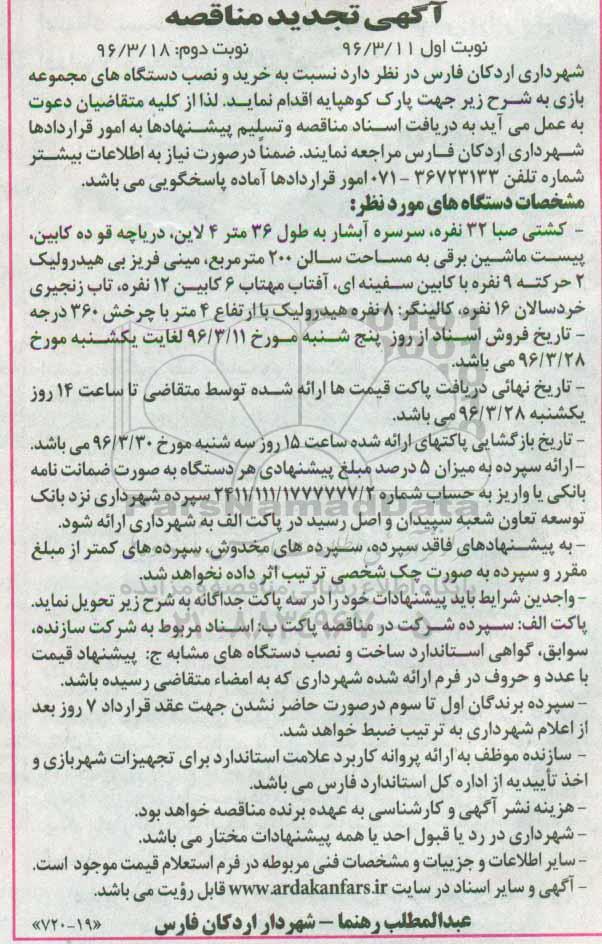 آگهی تجدید مناقصه
نوبت اول ۹۶/۳/۱۱ نوبت دوم: ۹۶/۳/۱۸
شهرداری اردکان فارس در نظر دارد نسبت به خرید و نصب دستگاه های مجموعه
بازی به شرح زیر جهت پارک کوهپایه اقدام نماید. لذا از کلیه متقاضیان دعوت
به عمل می آید به دریافت اسناد مناقصه وتسلیم پیشنهادها به امور قراردادها
شهرداری اردکان فارس مراجعه نمایند. ضمناً درصورت نیاز به اطلاعات بیشتر
شماره تلفن ۳۶۷۲۳۱۳۳ - ۰۷۱ امور قراردادها آماده پاسخگویی می باشد.
مشخصات دستگاه های مورد نظر:
- کشتی صبا ۳۲ نفره، سرسره آبشار به طول ۳۶ متر ۴ لاین، دریاچه قو ده کابین،
پیست ماشین برقی به مساحت سالن ۲۰۰ مترمربع، مینی فریز بی هیدرولیک
۲ حرکته ۹ نفره با کابین سفینه ای، آفتاب مهتاب ۶ کابین ۱۲ نفره، تاب زنجیری
خردسالان ۱۶ نفره، کالینگر: ۸ نفره هیدرولیک با ارتفاع ۴ متر با چرخش ۳۶۰ درجه
- تاریخ فروش اسناد از روز پنج شنبه مورخ ۹۶/۳/۱۱ لغایت یکشنبه مورخ
۹۶/۳/۲۸ می باشد.
- تاریخ نهائی دریافت پاکت قیمت ها ارائه شده توسط متقاضی تا ساعت ۱۴ روز
یکشنبه ۹۶/۳/۲۸ می باشد.
- تاریخ بازگشایی پاکتهای ارائه شده ساعت ۱۵ روز سه شنبه مورخ ۹۶/۳/۳۰ می باشد.
- ارائه سپرده به میزان ۵ درصد مبلغ پیشنهادی هر دستگاه به صورت ضمانت نامه
بانکی یا واریز به حساب شماره ۲۴۱۱/۱۱۱/۱۷۷۷۷۷۷/۲ سپرده شهرداری نزد بانک
توسعه تعاون شعبه سپیدان و اصل رسید در پاکت الف به شهرداری ارائه شود.
- به پیشنهادهای فاقد سپرده، سپرده های مخدوش، سپرده های کمتر از مبلغ
مقرر و سپرده به صورت چک شخصی ترتیب اثر داده نخواهد شد.
- واجدین شرایط باید پیشنهادات خود را در سه پاکت جداگانه به شرح زیر تحویل نماید.
پاکت الف: سپرده شرکت در مناقصه پاکت ب: اسناد مربوط به شرکت سازنده،
سوابق، گواهی استاندارد ساخت و نصب دستگاه های مشابه ج: پیشنهاد قیمت
با عدد و حروف در فرم ارائه شده شهرداری که به امضاء متقاضی رسیده باشد.
- سپرده برندگان اول تا سوم درصورت حاضر نشدن جهت عقد قرارداد ۷ روز بعد
از اعلام شهرداری به ترتیب ضبط خواهد شد.
- سازنده موظف به ارائه پروانه کاربرد علامت استاندارد برای تجهیزات شهربازی و
اخذ تأییدیه از اداره کل استاندارد فارس می باشد.
- هزینه نشر آگهی و کارشناسی به عهده برنده مناقصه خواهد بود.
- شهرداری در رد یا قبول احد یا همه پیشنهادات مختار می باشد.
- سایر اطلاعات و جزییات و مشخصات فنی مربوطه در فرم استعلام قیمت موجود است.
- آگهی و سایر اسناد در سایت www.ardakanfars.ir قابل رؤیت می باشد.
عبدالمطلب رهنما - شهردار اردکان فارس «۱۹-۷۲۰»
ParsNamadData